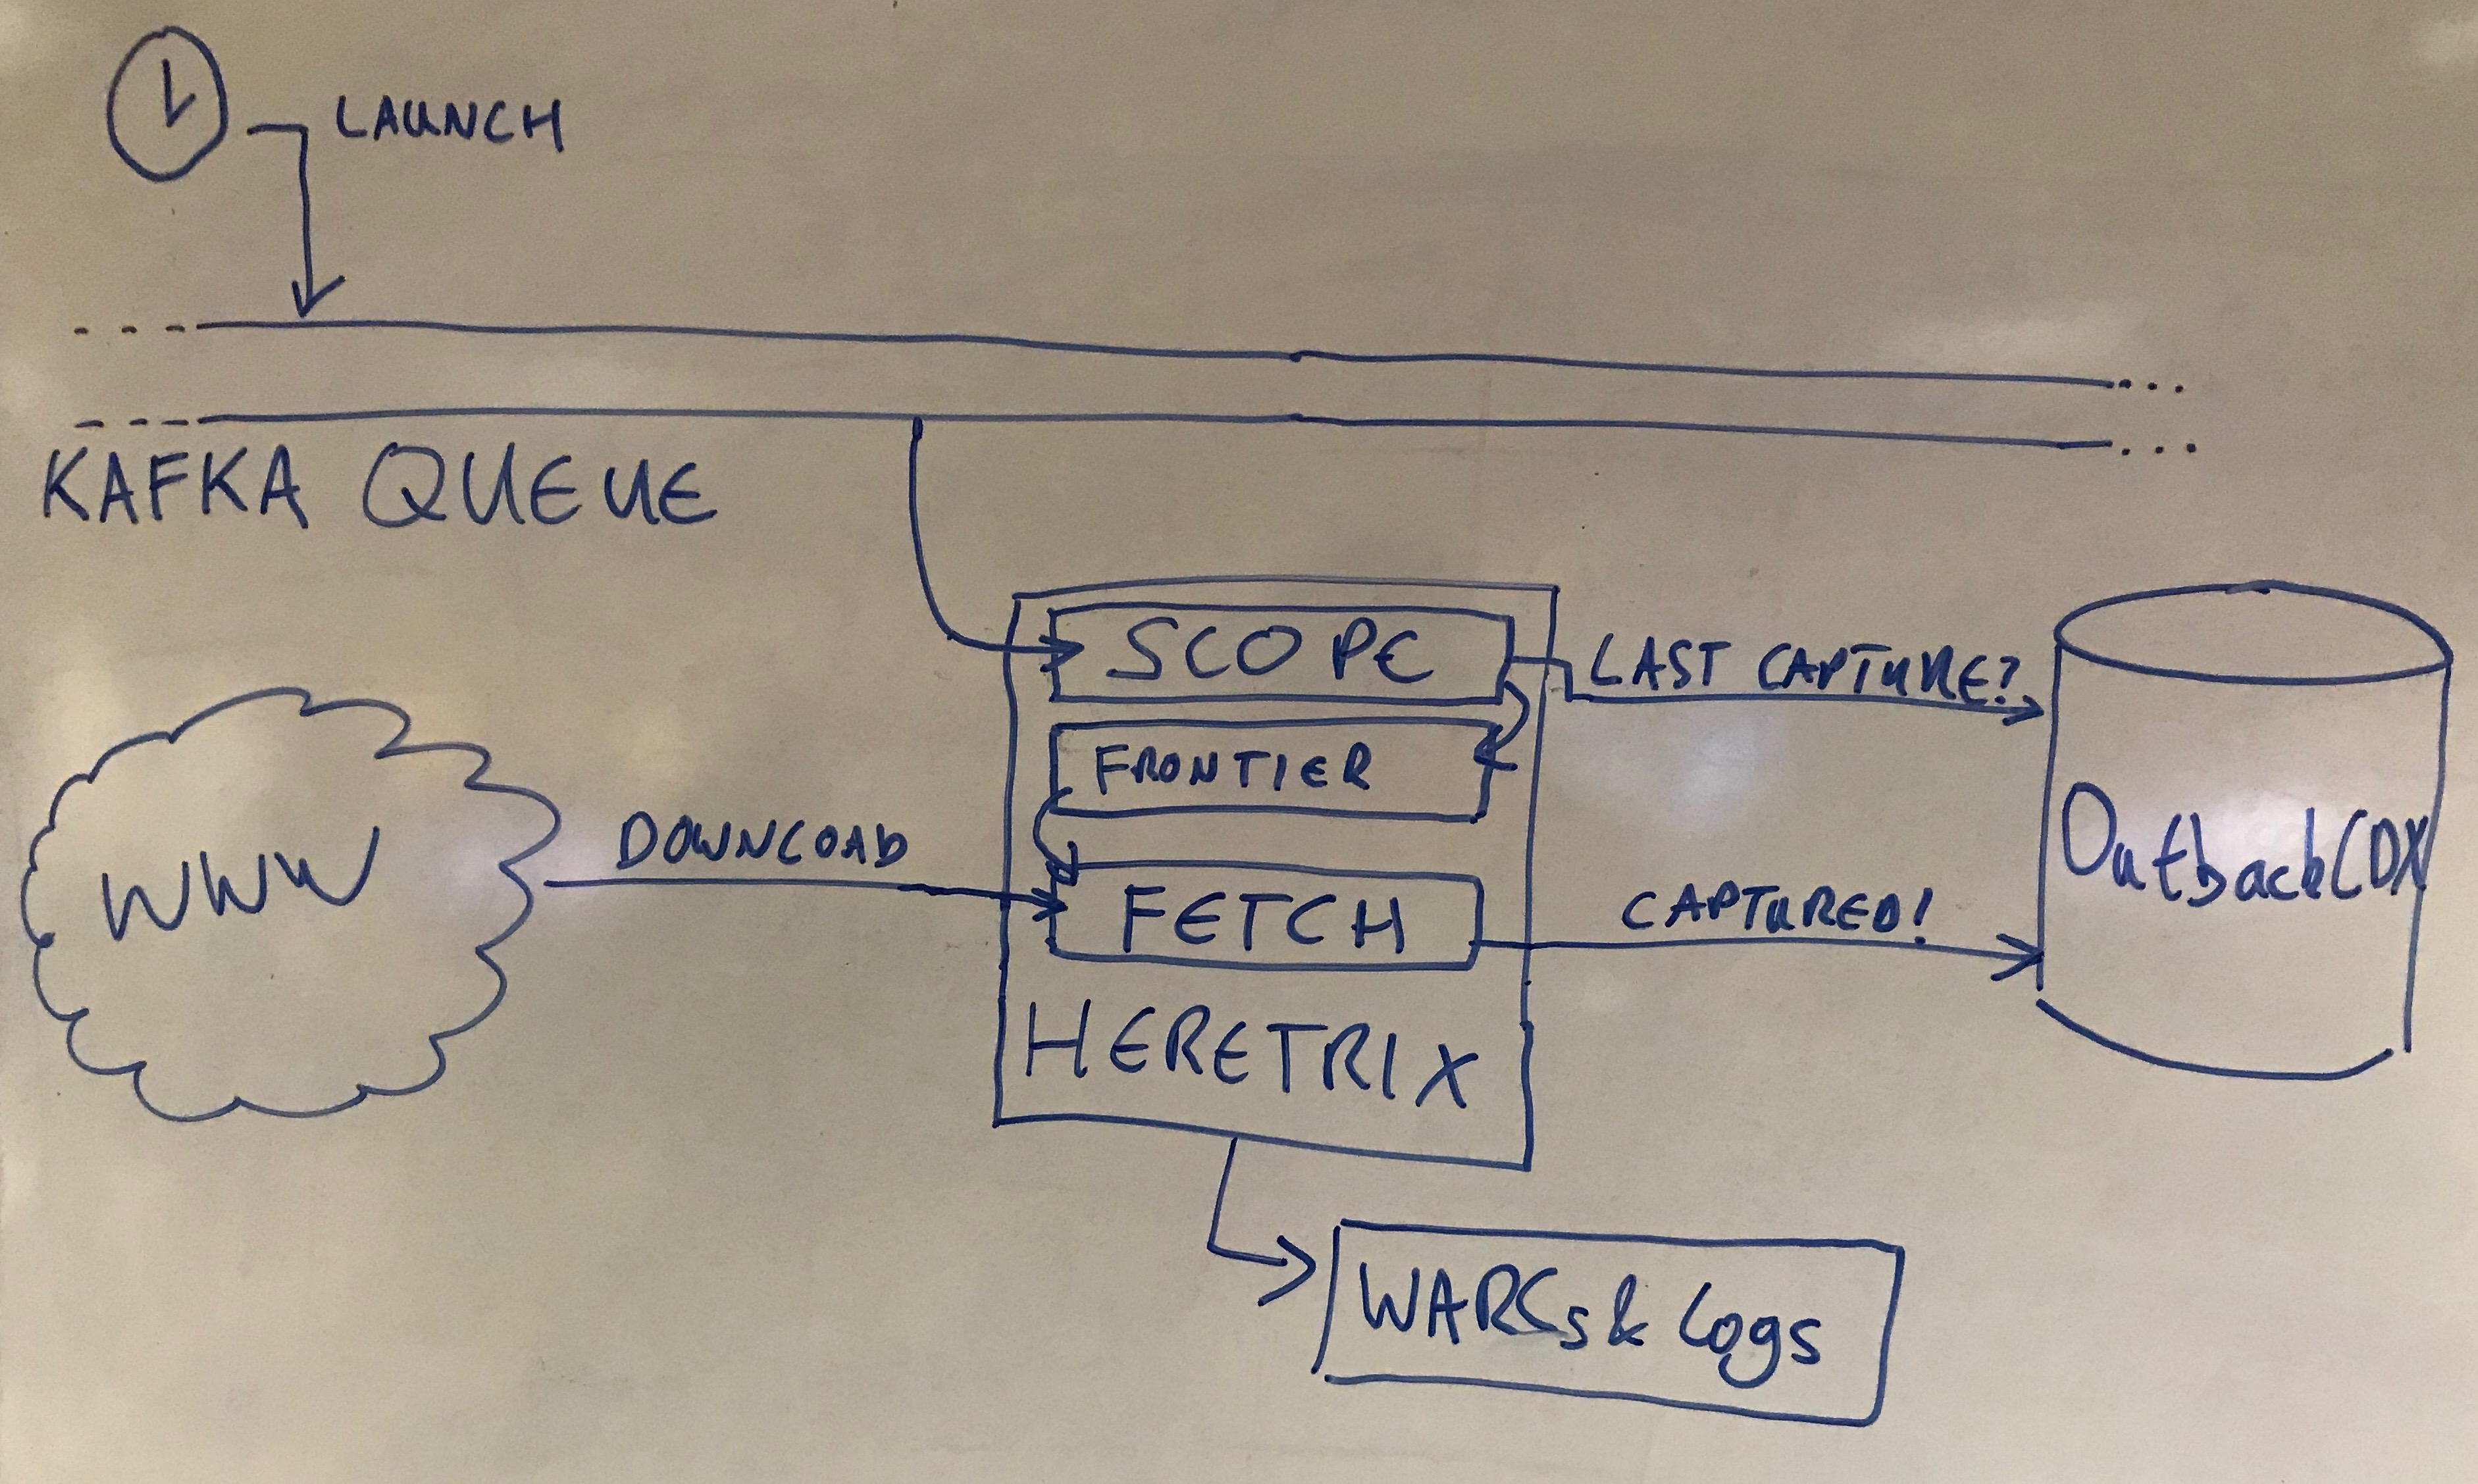 LAUNCH
KAFKA QUEUE
SCOPE
LAST CAPTURE?
FRONTIER
WWW
DOWNLOAD
FETCH
CAPTURED!
OutbackCDX
HERETRIX
WARCs & Logs